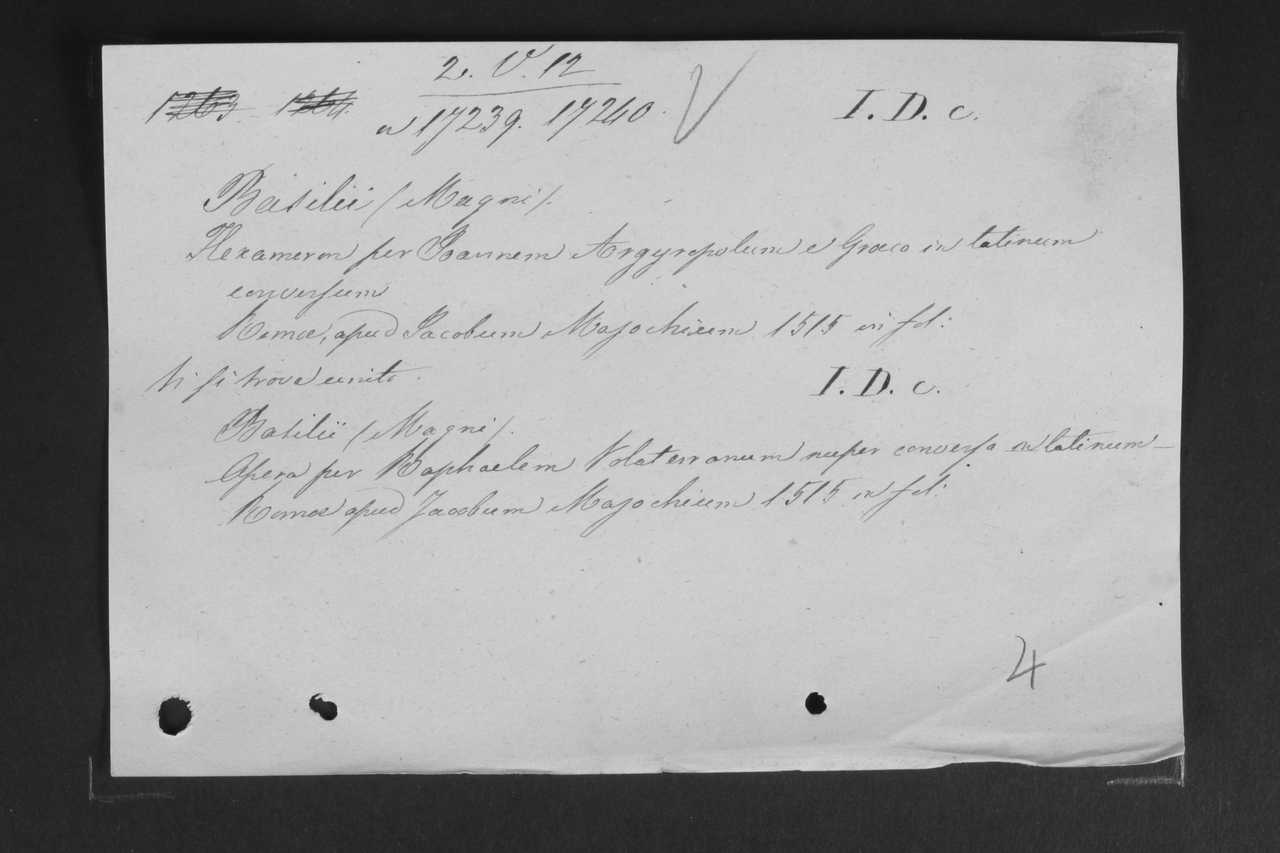 2. V. 12
1263 1264. n 17239. 17240. I. D. c.
Basilii (Magni).
Hexameron per Ioannem Argyropolum e Graeco in latinum
conversum
Romae, apud Jacobum Masochium 1515 in fol:
Vi si trova unito. I. D. c.
Basilii (Magni).
Opera per Raphaelem Volaterranum nuper conversa in latinum—
Romae apud Jacobum Masochium 1515 in fol:
4